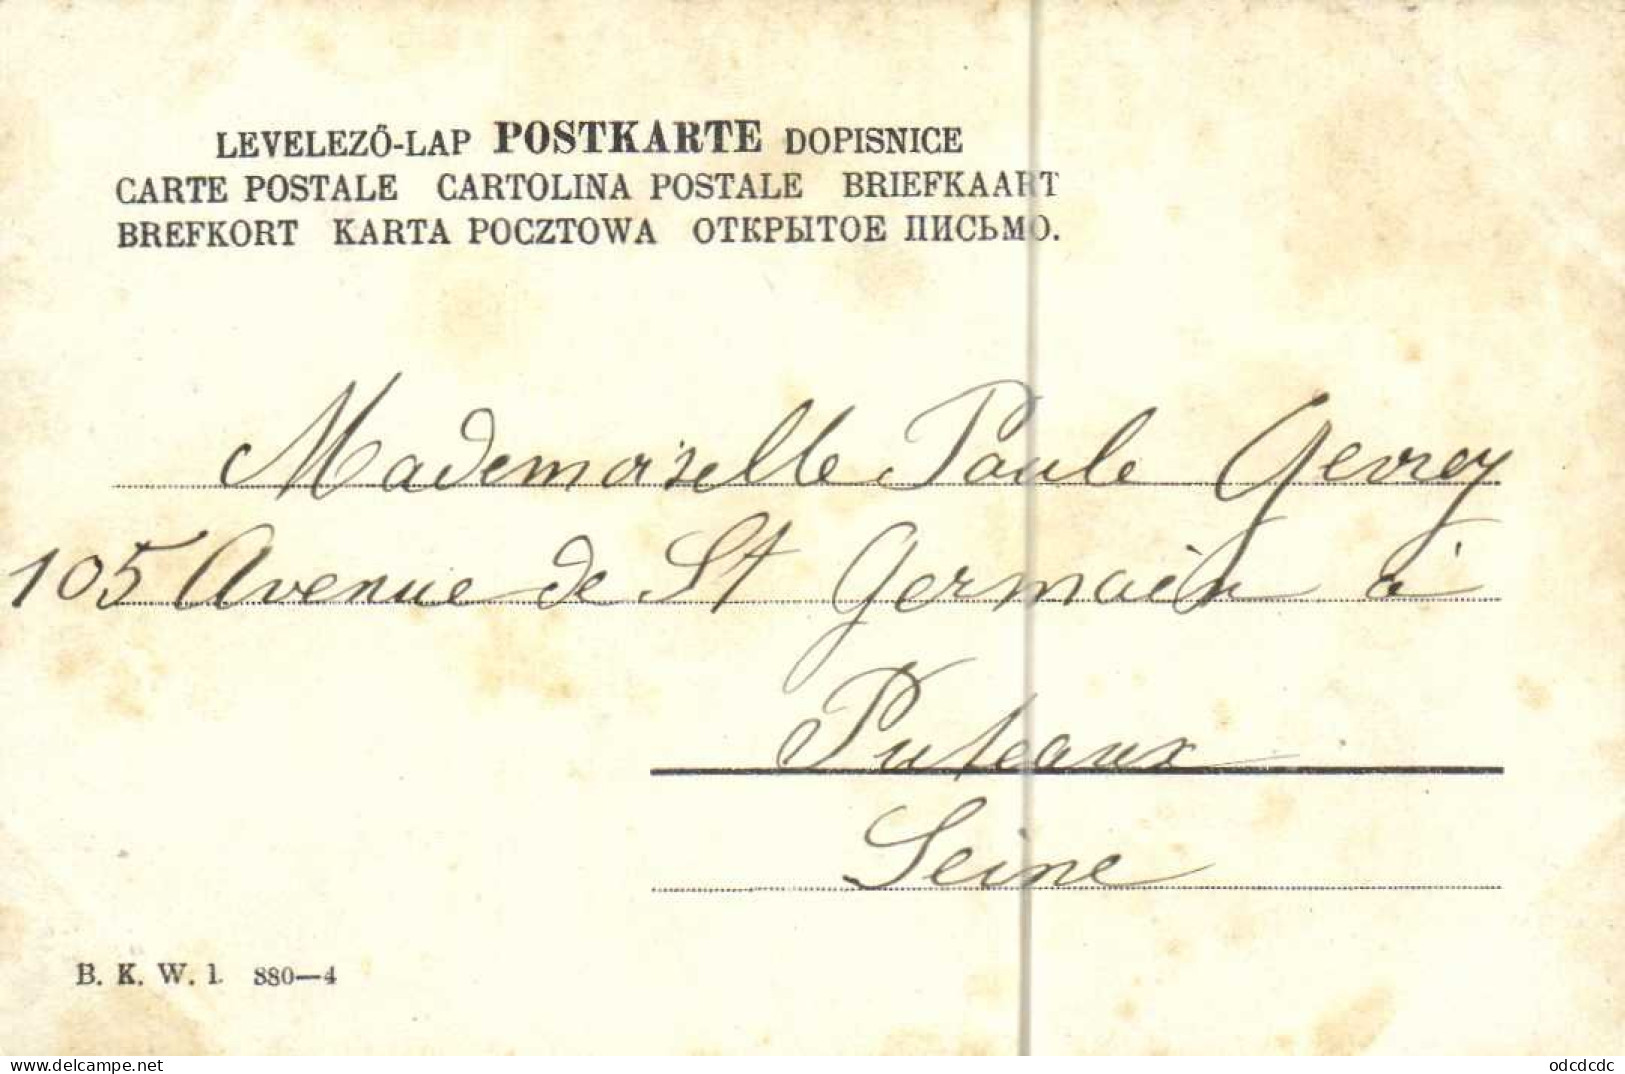 LEVELEZŐ-LAP POSTKARTE DOPISNICE
CARTE POSTALE CARTOLINA POSTALE BRIEFKAART
BREFKORT KARTA POCZTOWA ОТКРЫТОЕ ПИСЬМО.
Mademoiselle Paule Gevrey
105 Avenue de St Germain à
Puteaux
Seine
B. K. W. I. 880—4
www.delcampe.net
odcdcdc